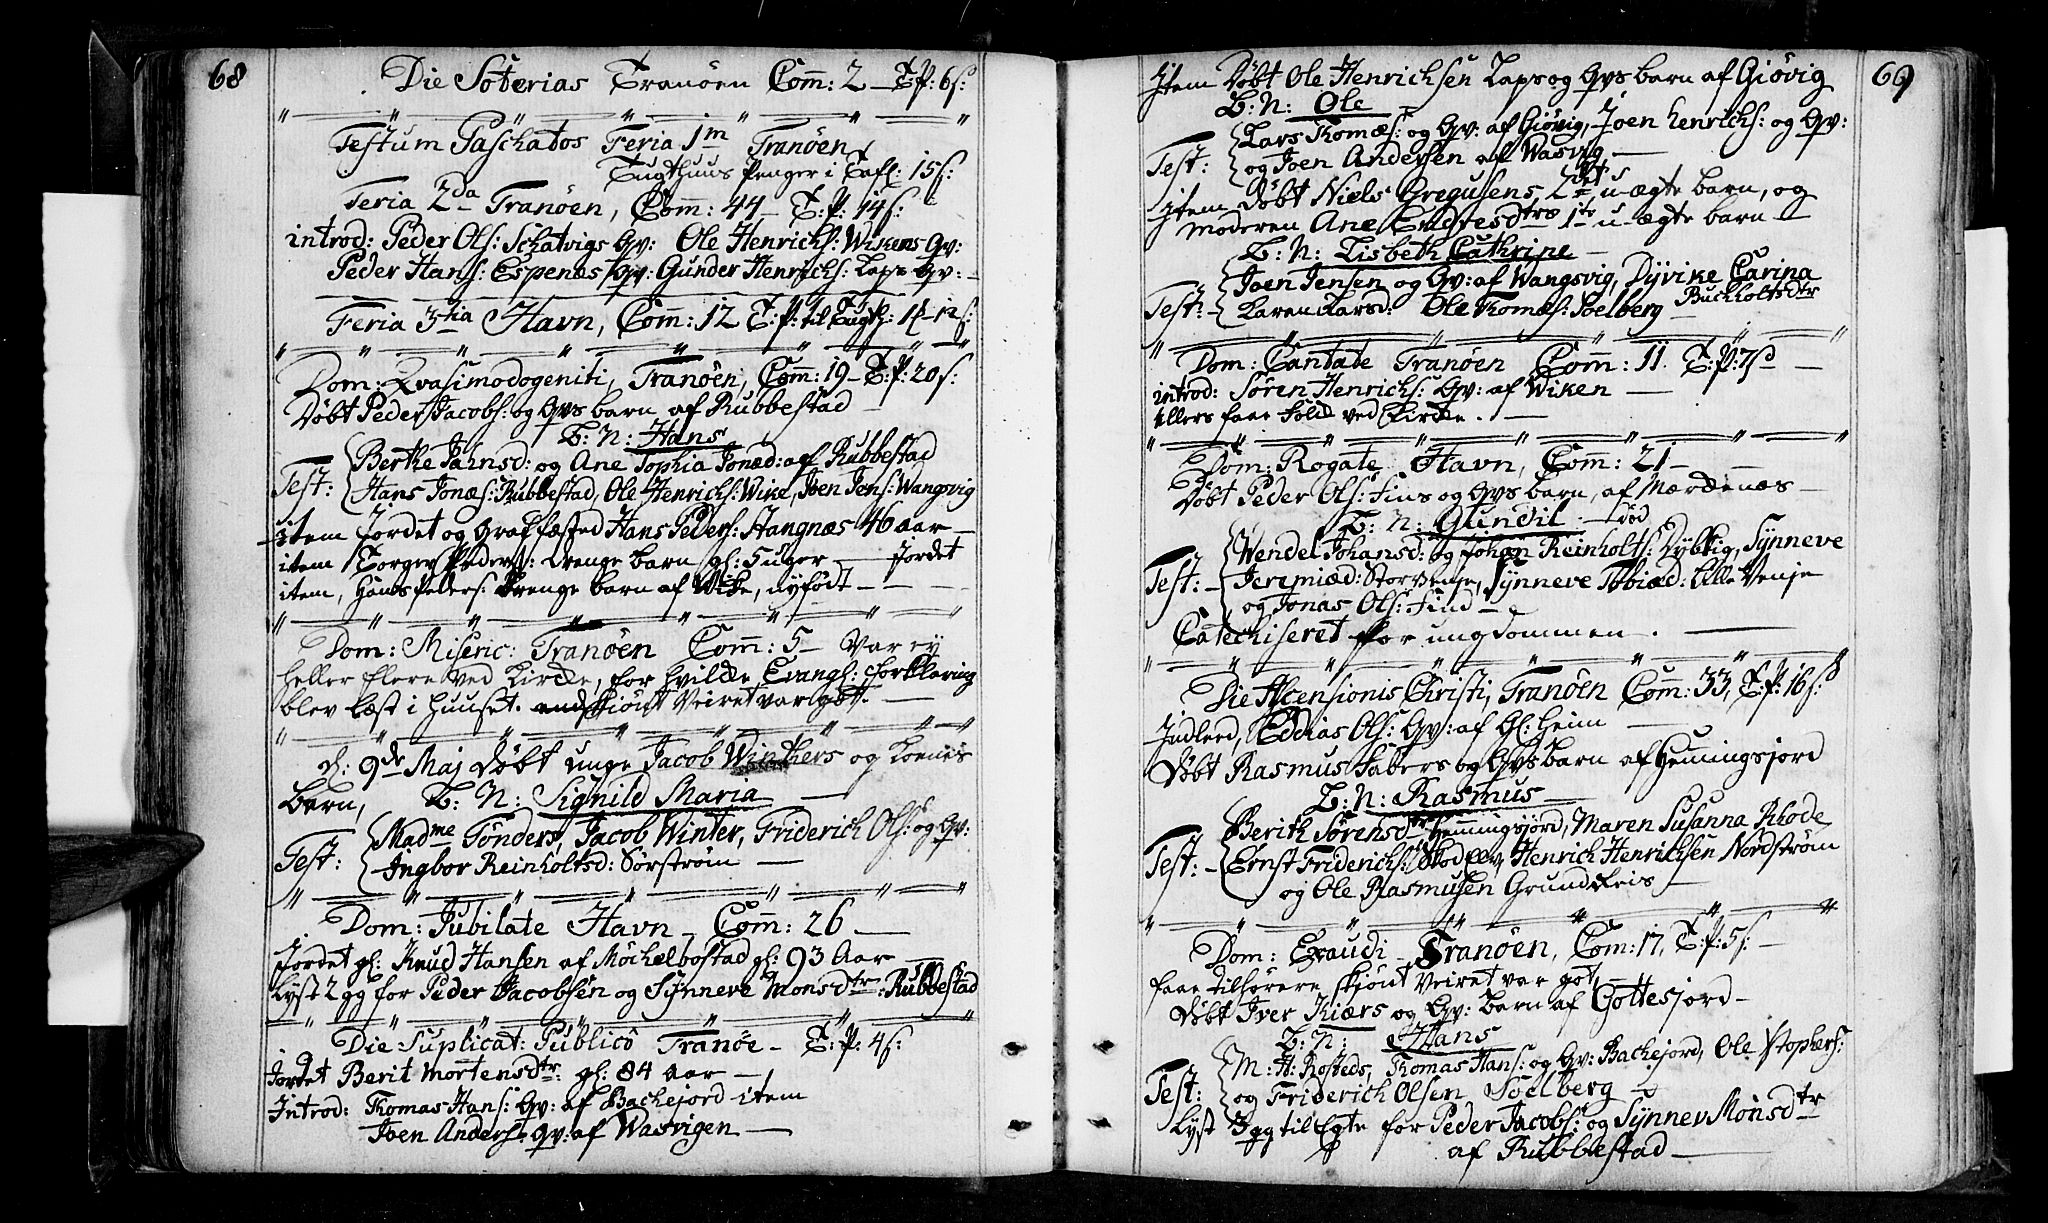 68
Die Soterias Tranöen Com̄: 2 — T:P: 6 s:
Festum Paschatos Feria 1m Tranöen
Tugthuus Penger i Tafl: 15 s:
Feria 2da Tranöen, Com̄: 44 — T:P: 14 s:
introd: Peder Ols: Schatvigs Qv: Ole Henrichs: Wikens Qv:
Peder Hans: Espenes Qv: Gunder Henrichs: Laps Qv: —
Feria 3tia Havn, Com̄: 12 T:P: til Tugth:
Dom: Qvasimodogeniti, Tranöen, Com̄: 19 — T:P: 20 s:
Döbt Peder Jacobs: og Qvs barn af Rubbestad —
B: N: Hans
Test: Berthe Jahnsd: og Ane Sophia Jonæd: af Rubbestad
Hans Jonæs: Rubbestad, Ole Henrichs: Wike, Joen Jens: Wangsvig
item jordet og graffæsted Hans Peders: Stangnæs 46 aar —
item Torger Peders: drenge barn gl: 5 uger — jordet
item, Hans Peders: drenge barn af Wike, nyfödt — — —
Dom: Miseric: Tranöen Com̄: 5 — Var ey
heller flere ved Kircke, for hvilcke Evangl: forklaring
blev læst i huuset. skiönt Veiret var got. —
d: 9de Maj döbt unge Jacob Winthers og Kones
barn, B: N: Signild Maria —
Test: Madme Tönders, Jacob Winter, Friderich Ols: og Qv:
Ingbor Reinholtsd: Sörström —
Dom: Jubilate Havn — Com̄: 26 —
Jordet gl: Knud Hansen af Möckelbostad gl: 93 Aar —
Lyst 2 gg for Peder Jacobsen og Synneve Monsdtr: Rubbestad
Die Suplicat: Publico Tranöe — T:P: 4 s:
Jordet Berit Mortensdtr: gl: 84 aar —
Introd: Thomas Hans: Qv: af Backejord item
Joen Anders: Qv: af Wasvigen —
69
item Döbt Ole Henrichsen Laps og Qvs barn af Giövig
B: N: Ole
Test: Lars Thomæs: og Qv: af Giövig, Joen Henrichs: og Qv:
og Joen Andersen af Wasvig —
item Döbt Niels Gregusens 2det u-ægte barn, og
moderen Ane Endresdtrs 1te u-ægte barn
B: N: Lisbeth Cathrine —
Test: Joen Jensen og Qv: af Wangsvig, Dyvike Carina
Buckholtsdtr
Karen Larsd: Ole Thomæs: Solberg
Dom: Cantate Tranöen Com̄: 11. T:P: 7 s —
introd: Sören Henrichs: Qv: af Wiken —
ellers faae Folck ved Kircke. —
Dom: Rogate Havn, Com̄: 21 — —
Döbt Peder Ols: Fins og Qvs barn, af Mærckenæs —
B: N: Gundil — död
Test: Wendel Johansd: og Johan Reinholts: Dybvig, Synneve
Jeremiæd: Storvenje, Synneve Tobiæd: Lille Venje
og Jonas Ols: Find —
Catechiseret for ungdommen. —
Die Ascensionis Christi, Tranöen Com̄: 33, T:P: 16 s:
Indleed, Eddias Ols: Qv: af Gl: heim —
Döbt Rasmus Fabers og Qvs Barn af Hemingsjord
B: N: Rasmus —
Test: Berith Sörensdtr Hemmingsjord, Maren Susanna Rhode
Ernst Friderichs: Skodelv, Henrich Henrichsen Nordström
og Ole Rasmusen Grundreis —
Dom: Exaudi Tranöen, Com: 17, T:P: 5 s: —
faae tilhörere skjönt Veiret var got,
Döbt Iver Kiærs og Qv: Barn af Gottesjord —
B: N: Hans
Test: M: H: Rosteds, Thomas Hans: og Qv: Backejord, Ole Stophers:
og Friderich Olsen Solberg
Lyst 3 gg til Egte for Peder Jacobs: og Synnev Monsdtr
af Rubbestad —